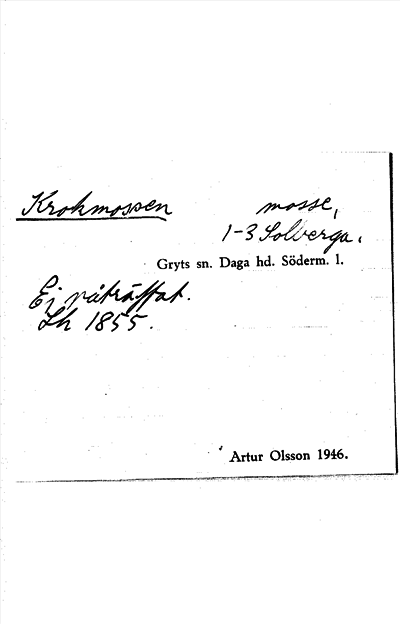 Krokmossen mosse,
1-3 Solberga.
Gryts sn. Daga hd. Söderm. l.
Ej påträffat.
Lh 1855.
Artur Olsson 1946.